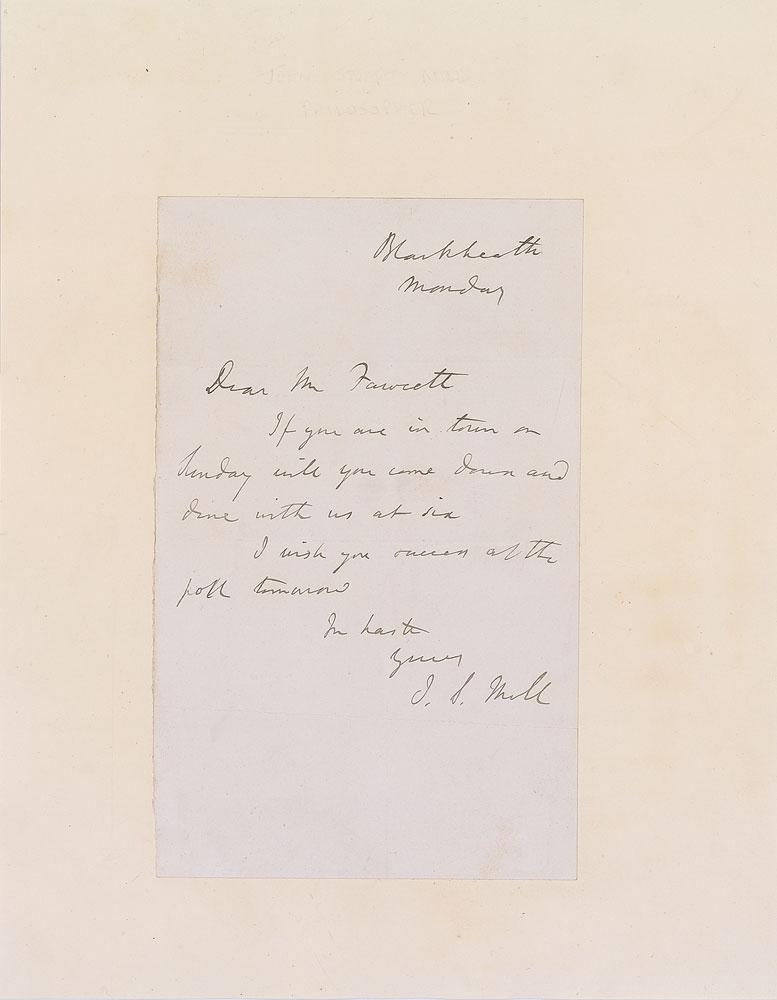 Blackheath
Monday
Dear Mr Fawcett
If you are in town on
Sunday will you come down and
dine with us at six
I wish you success at the
poll tomorrow
In haste
yours
J. S. Mill